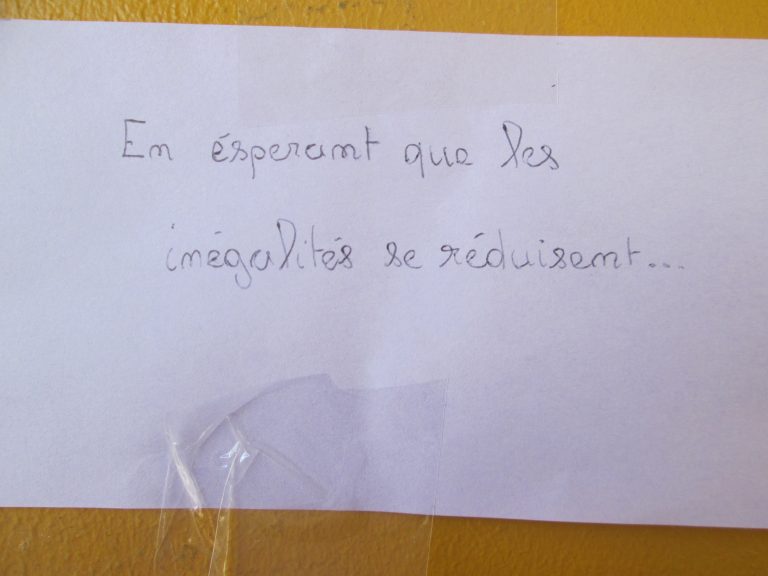 En ésperant que les
inégalités se réduisent...